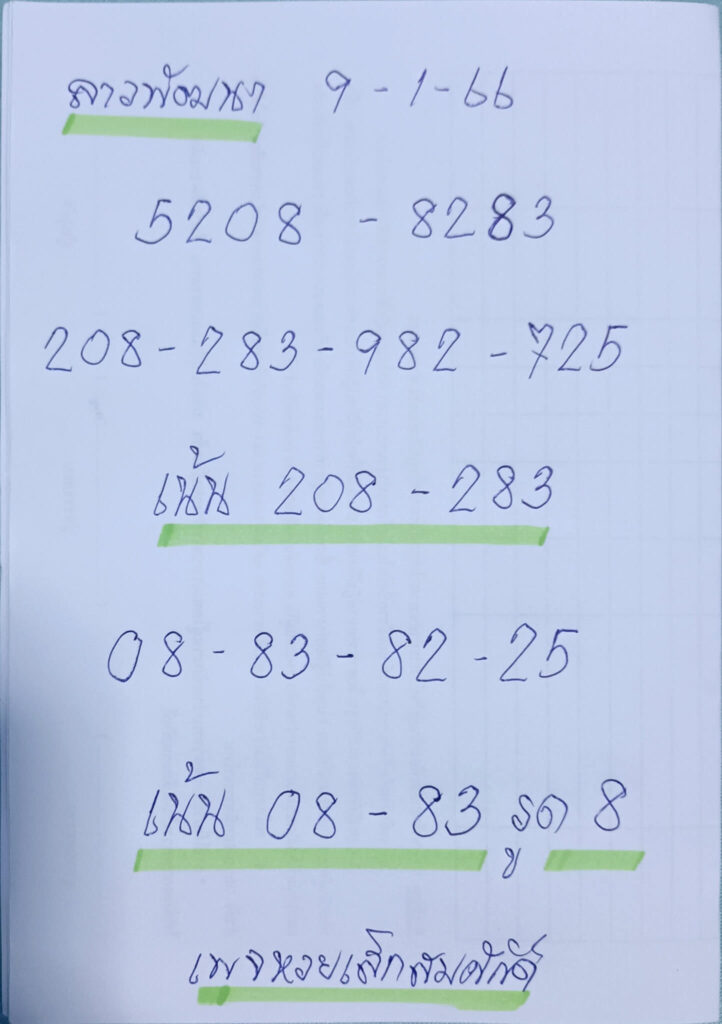 ลาวพัฒนา 9-1-66
5208 - 8283
208-283-982-725
เน้น 208-283
08-83-82-25
เน้น 08-83 รูด 8
เพจหวยเล็กสมศักดิ์